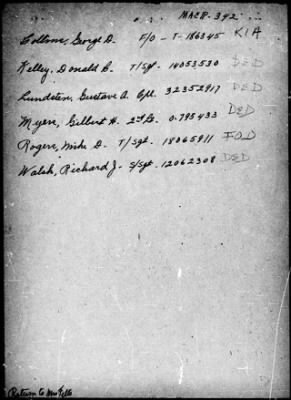 MACR-392
Collom, George D. F/O - T-186345 KIA
Kelley, Donald C. T/Sgt. 14053530 DED
Lundsten, Gustave A. Cpl. 32352917 DED
Myers, Gilbert H. 2nd Lt. 0.795433 DED
Rogers, Mike D. T/Sgt. 18065911 FOD
Walsh, Richard J. S/Sgt. 12062308 DED
Return to Mrs